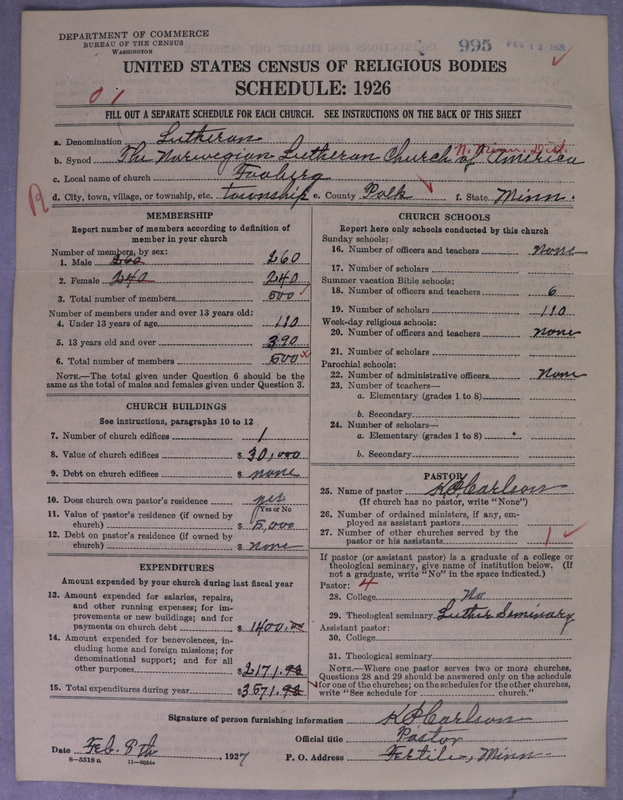 DEPARTMENT OF COMMERCE
BUREAU OF THE CENSUS
WASHINGTON
995 FEB 12
UNITED STATES CENSUS OF RELIGIOUS BODIES
SCHEDULE: 1926
01
FILL OUT A SEPARATE SCHEDULE FOR EACH CHURCH. SEE INSTRUCTIONS ON THE BACK OF THIS SHEET
a. Denomination Lutheran
N. Minn. Dist.
b. Synod The Norwegian Lutheran Church of America
c. Local name of church Faaberg
d. City, town, village, or township, etc. township e. County Polk f. State Minn.
R
MEMBERSHIP
Report number of members according to definition of
member in your church
Number of members, by sex:
1. Male 260 260
2. Female 240 240
3. Total number of members 500
Number of members under and over 13 years old:
4. Under 13 years of age 110
5. 13 years old and over 390
6. Total number of members 500 x
NOTE.—The total given under Question 6 should be
same as the total of males and females given under Question 3.
CHURCH BUILDINGS
See instructions, paragraphs 10 to 12
7. Number of church edifices 1
8. Value of church edifices $ 30,000
9. Debt on church edifices $ none
10. Does church own pastor's residence yes
Yes or No
11. Value of pastor's residence (if owned by
church) $ 5,000
12. Debt on pastor's residence (if owned by
church) $ none
EXPENDITURES
Amount expended by your church during last fiscal year
13. Amount expended for salaries, repairs,
and other running expenses; for im-
provements or new buildings; and for
payments on church debt $ 1400.00
14. Amount expended for benevolences, in-
cluding home and foreign missions; for
denominational support; and for all
other purposes $ 2171.98
15. Total expenditures during year $ 3571.98
CHURCH SCHOOLS
Report here only schools conducted by this church
Sunday schools:
16. Number of officers and teachers None
17. Number of scholars
Summer vacation Bible schools:
18. Number of officers and teachers 6
19. Number of scholars 110
Week-day religious schools:
20. Number of officers and teachers none
21. Number of scholars
Parochial schools:
22. Number of administrative officers None
23. Number of teachers—
a. Elementary (grades 1 to 8)
b. Secondary
24. Number of scholars—
a. Elementary (grades 1 to 8)
b. Secondary
PASTOR
25. Name of pastor K P Carlson
(If church has no pastor, write "None")
26. Number of ordained ministers, if any, em-
ployed as assistant pastors
27. Number of other churches served by the
pastor or his assistants 1
If pastor (or assistant pastor) is a graduate of a college or
theological seminary, give name of institution below. (If
not a graduate, write "No" in the space indicated.)
Pastor: 4
28. College No
29. Theological seminary Luther Seminary
Assistant pastor:
30. College
31. Theological seminary
NOTE.—Where one pastor serves two or more churches,
Questions 28 and 29 should be answered only on the schedule
for one of the churches; on the schedules for the other churches,
write "See schedule for church."
Signature of person furnishing information K P Carlson
Official title Pastor
Date Feb. 8th, 1927 P. O. Address Fertile, Minn
8—5518 a